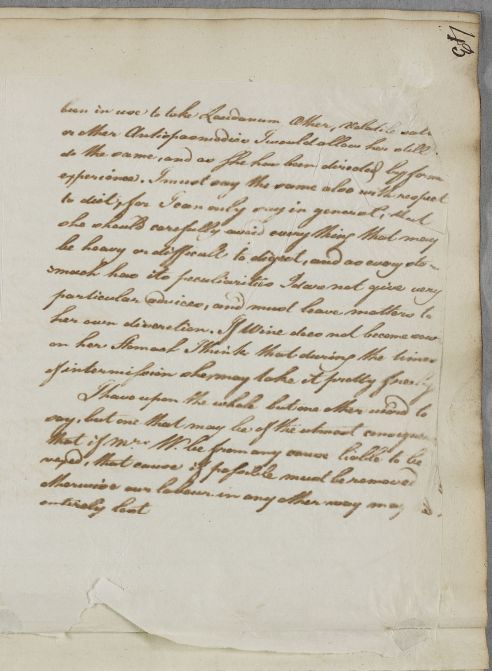 43
been in use to take Laudanum Æther, Volatile salt
or other Antispasmodics I would allow her still
do the same, and as She has been directed by form
experience. I must say the same also with respect
to diet, for I can only say in general, that
she should carefully avoid every thing that may
be heavy or difficult to digest, and as every sto=
=mach has its peculiarities I dare not give very
particular advices, and must leave matters to
her own discretion. If Wine does not become sour
on her Stomach I think that during the times
of intermission she may take it pretty freely
I have upon the whole but one other word to
say, but one that may be of the utmost consequen
that if Mrs. W. be from any cause liable to be
vexed, that cause if possible must be removed
otherwise our labour in any other way may
entirely lost